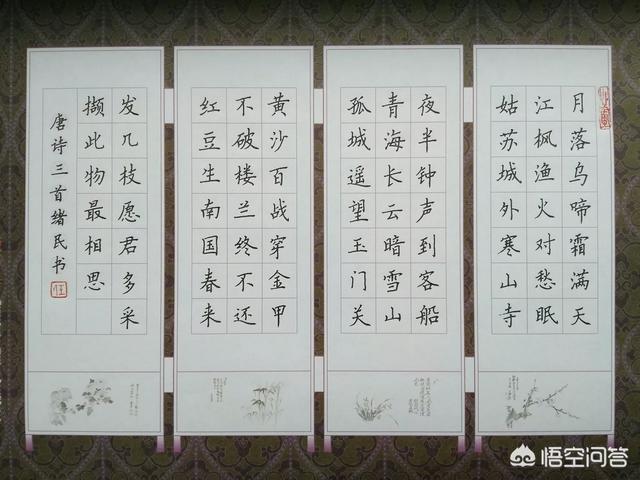 月落乌啼霜满天
江枫渔火对愁眠
姑苏城外寒山寺
夜半钟声到客船
青海长云暗雪山
孤城遥望玉门关
黄沙百战穿金甲
不破楼兰终不还
红豆生南国春来
发几枝愿君多采
撷此物最相思
唐诗三首绪民书
悟空问答